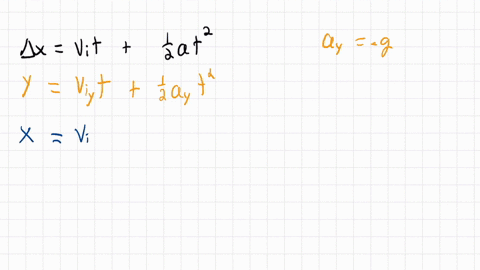 Δx = vᵢt + ½at²
a_y = -g
y = v_{iy}t + ½a_y t²
x = vᵢ